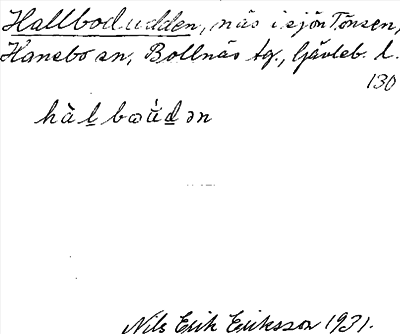 Hallbodudden, näs i sjön Tönsen,
Hanebo sn, Bollnäs tg., Gävleb. d.
130
hàḻbωú̱ḏən
Nils Erik Eriksson 1931.